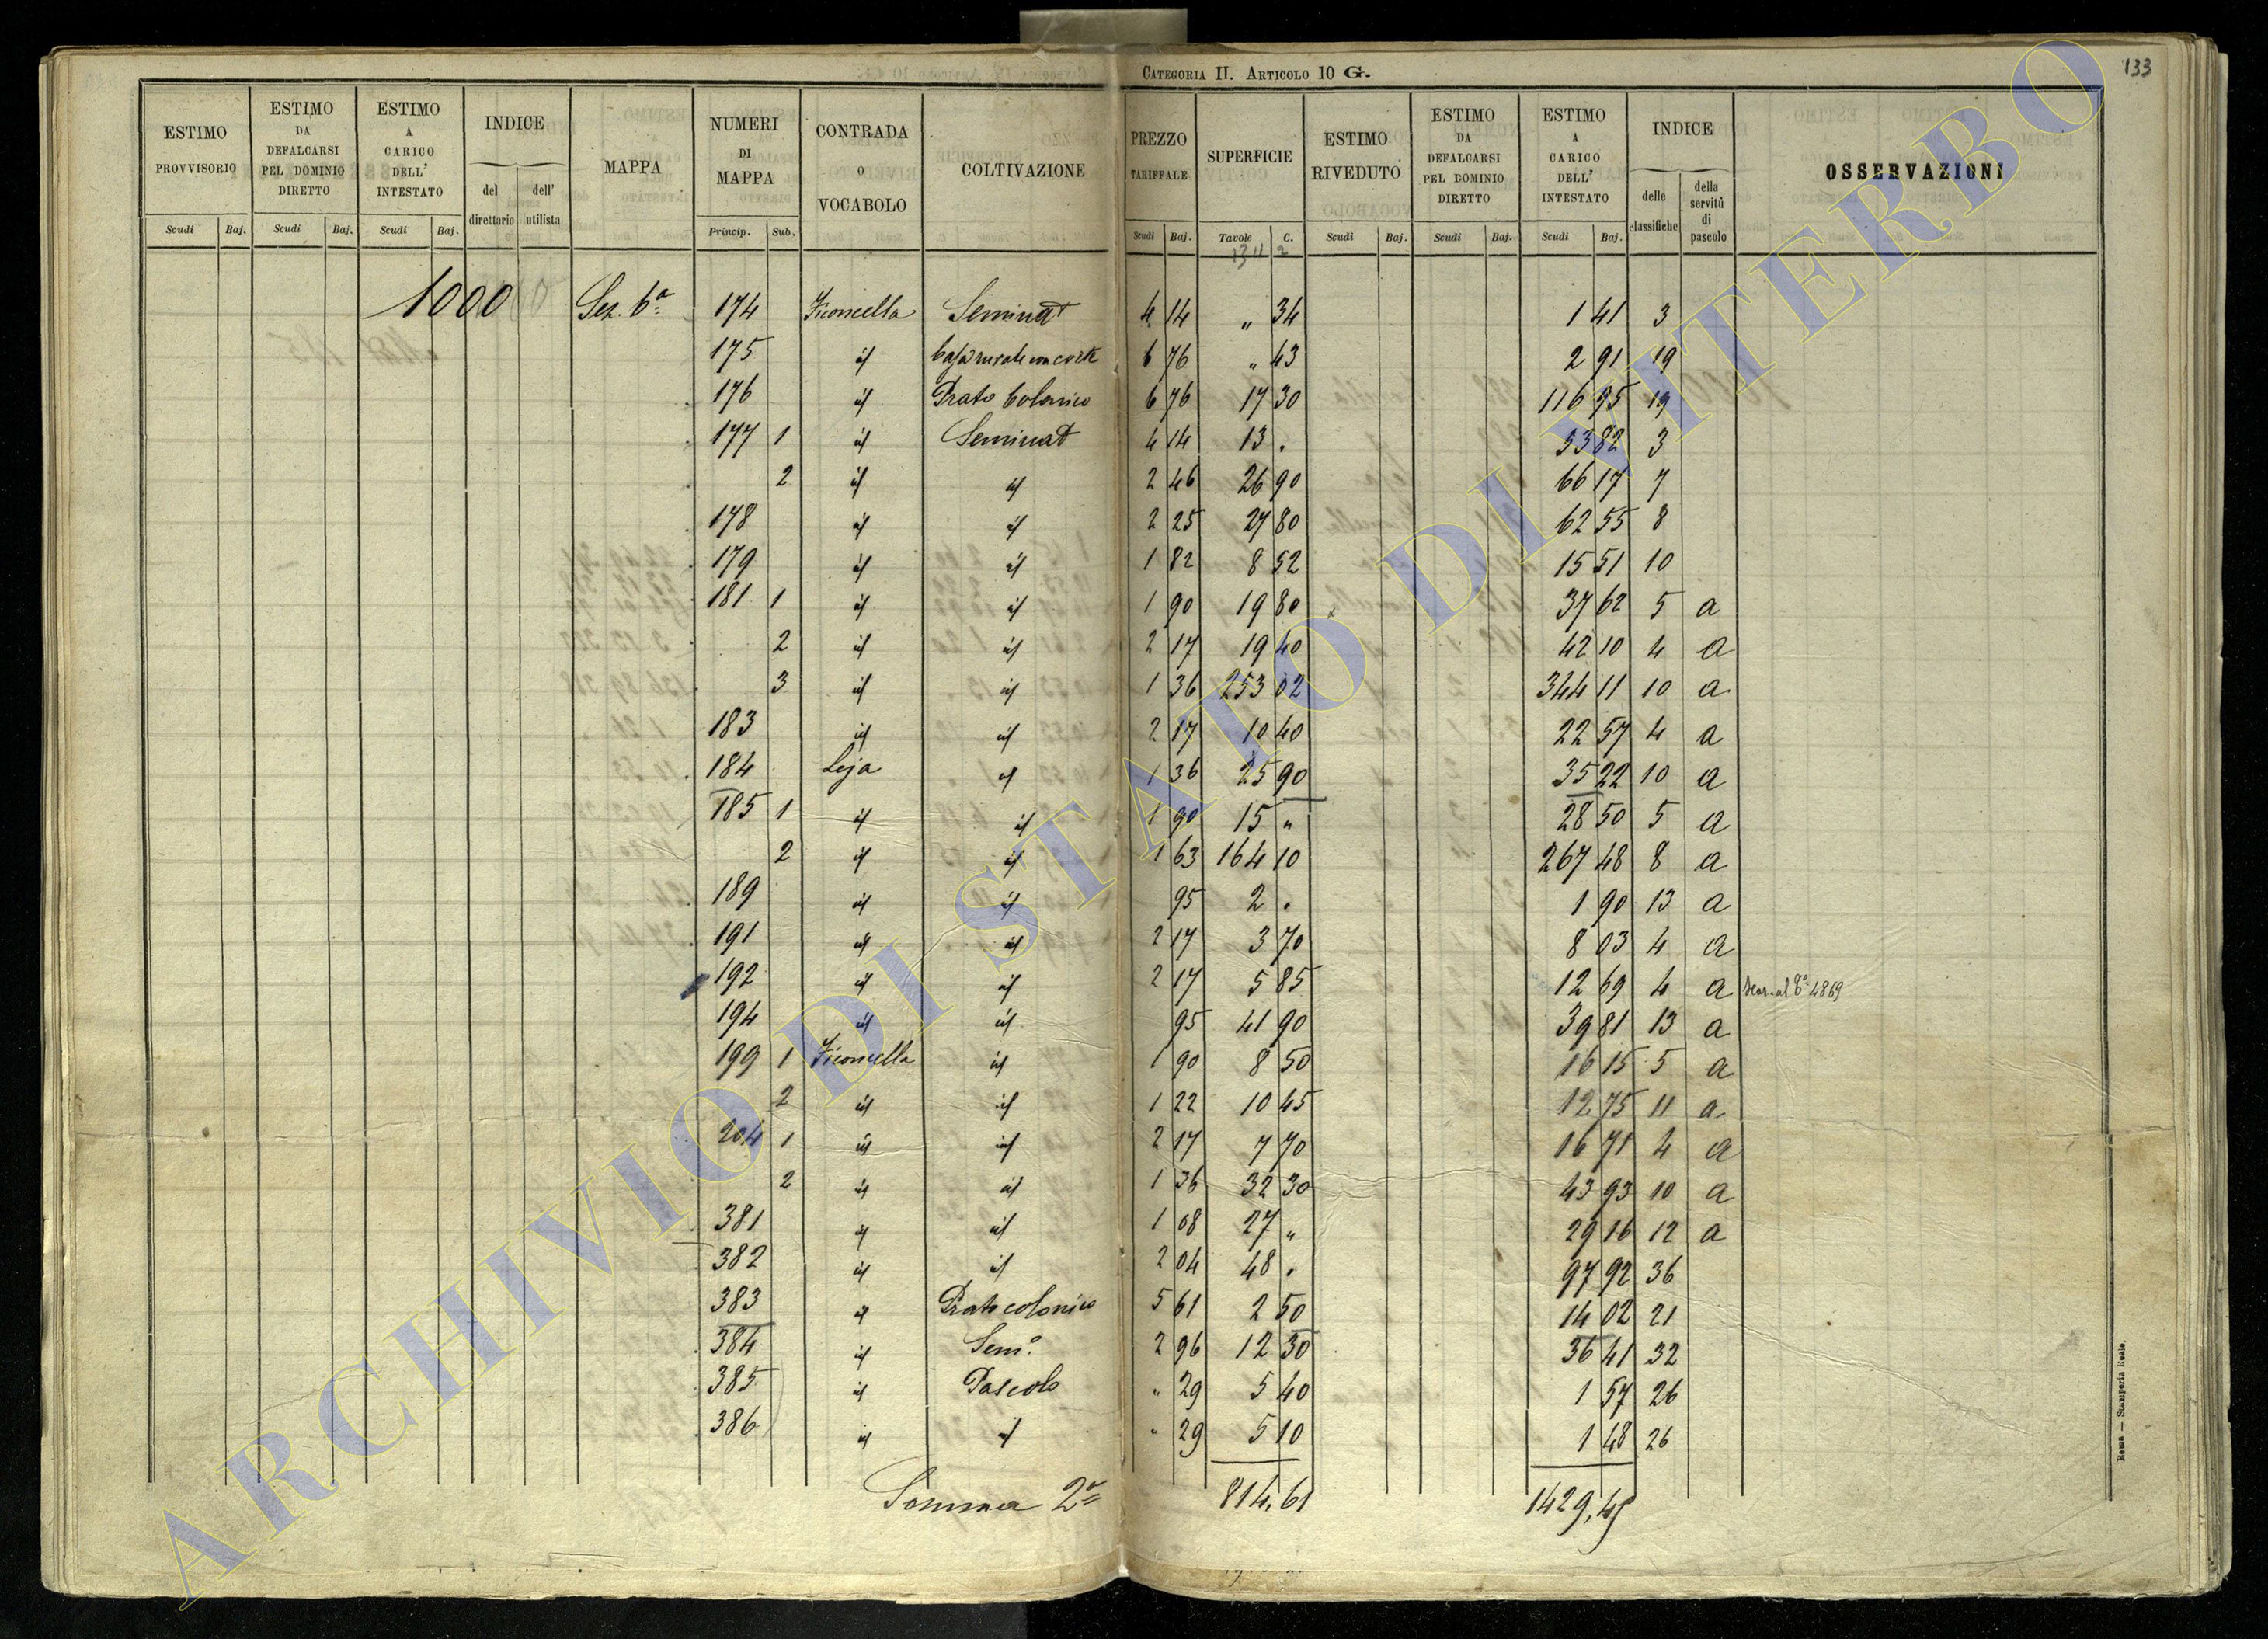 CATEGORIA II. ARTICOLO 10 G.
133
ESTIMO PROVVISORIO Scudi Baj.
ESTIMO DA DEFALCARSI PEL DOMINIO DIRETTO Scudi Baj.
ESTIMO A CARICO DELL' INTESTATO Scudi Baj.
INDICE del direttario dell' utilista
MAPPA
NUMERI DI MAPPA Princip. Sub.
CONTRADA O VOCABOLO
COLTIVAZIONE
PREZZO TARIFFALE Scudi Baj.
SUPERFICIE Tavole C.
ESTIMO RIVEDUTO Scudi Baj.
ESTIMO DA DEFALCARSI PEL DOMINIO DIRETTO Scudi Baj.
ESTIMO A CARICO DELL' INTESTATO Scudi Baj.
INDICE delle classifiche della servitù di pascolo
OSSERVAZIONI
1311 2
1000 Sez. 6ª 174 Ficoncella Seminat 4 14 " 34 1 41 3
175 id Casa rurale con corte 6 76 " 43 2 91 19
176 id Prato Colonico 6 76 17 30 116 95 19
177 1 id Seminat 4 14 13 . 53 82 3
2 id id 2 46 26 90 66 17 7
178 id id 2 25 27 80 62 55 8
179 id id 1 82 8 52 15 51 10
181 1 id id 1 90 19 80 37 62 5 a
2 id id 2 17 19 40 42 10 4 a
3 id id 1 36 253 02 344 11 10 a
183 id id 2 17 10 40 22 57 4 a
184 Leja id 1 36 25 90 35 22 10 a
185 1 id id 1 90 15 " 28 50 5 a
2 id id 1 63 164 10 267 48 8 a
189 id id 95 2 . 1 90 13 a
191 id id 2 17 3 70 8 03 4 a
192 id id 2 17 5 85 12 69 4 a 4869
194 id id 95 41 90 39 81 13 a
199 1 Ficoncella id 1 90 8 50 16 15 5 a
2 id id 1 22 10 45 12 75 11 a
204 1 id id 2 17 7 70 16 71 4 a
2 id id 1 36 32 30 43 93 10 a
381 id id 1 08 27 " 29 16 12 a
382 id id 2 04 48 . 97 92 36
383 id Prato colonico 5 61 2 50 14 02 21
384 id Sem.º 2 96 12 30 36 41 32
385 id Pascolo " 29 5 40 1 57 26
386 id id " 29 5 10 1 48 26
Somma 2ª 814,61 1429,45
Roma — Stamperia Reale.
ARCHIVIO DI STATO DI VITERBO